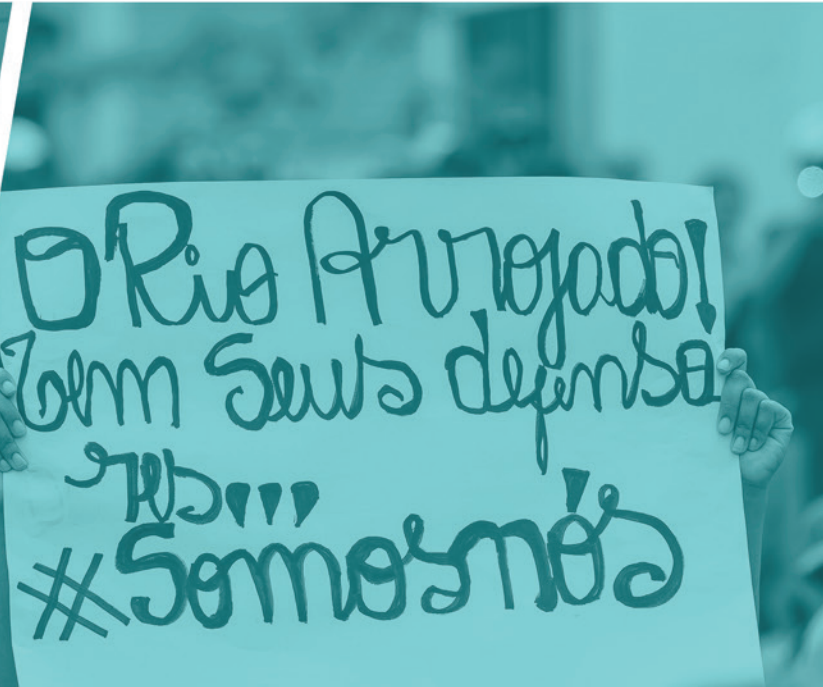 O Rio Arrojado!
tem Seus defenso
res...
#Somosnós